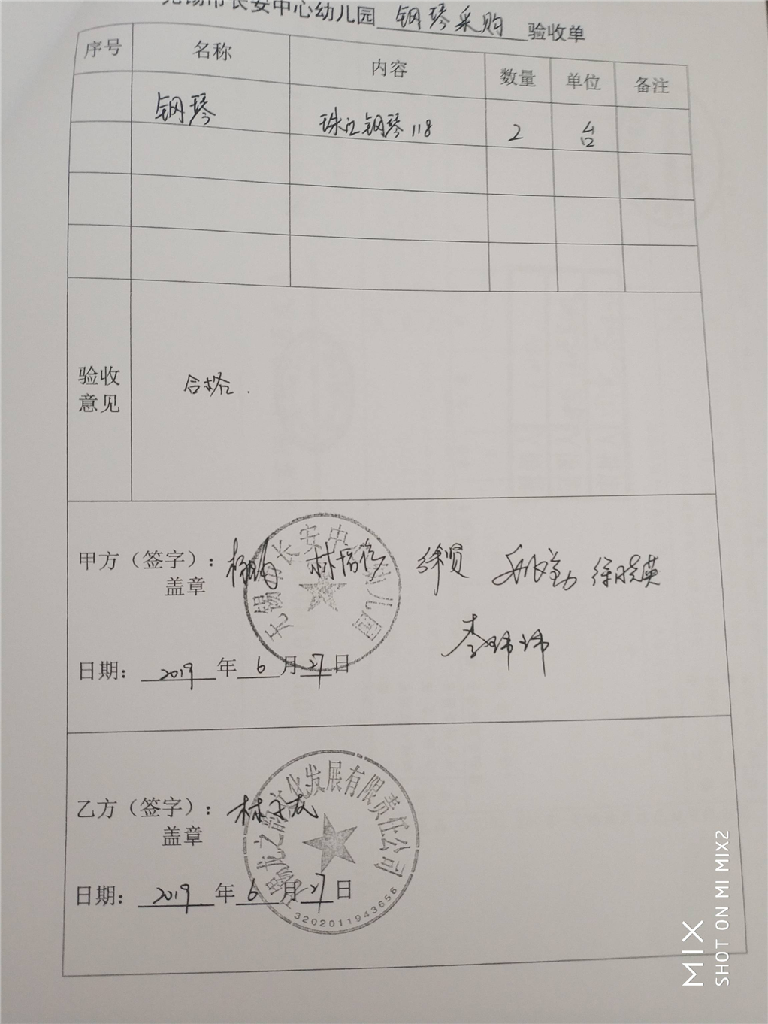 无锡市长安中心幼儿园 钢琴采购 验收单
序号 名称 内容 数量 单位 备注
钢琴 珠江钢琴118 2 台
验收意见
合格.
甲方（签字）：
盖章
无锡市长安中心幼儿园
日期： 2019 年 6 月 27 日
乙方（签字）：
盖章
文化发展有限责任公司
3202011943656
日期： 2019 年 6 月 27 日
MIX
SHOT ON MI MIX2